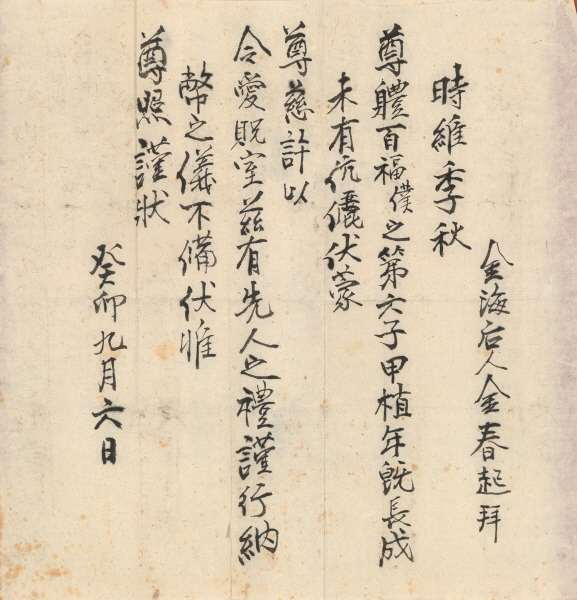 金海后人金春起拜
時維季秋
尊體百福僕之第六子甲植年旣長成
未有伉儷伏蒙
尊慈許以
令愛貺室玆有先人之禮謹行納
幣之儀不備伏惟
尊照謹狀
癸卯九月六日